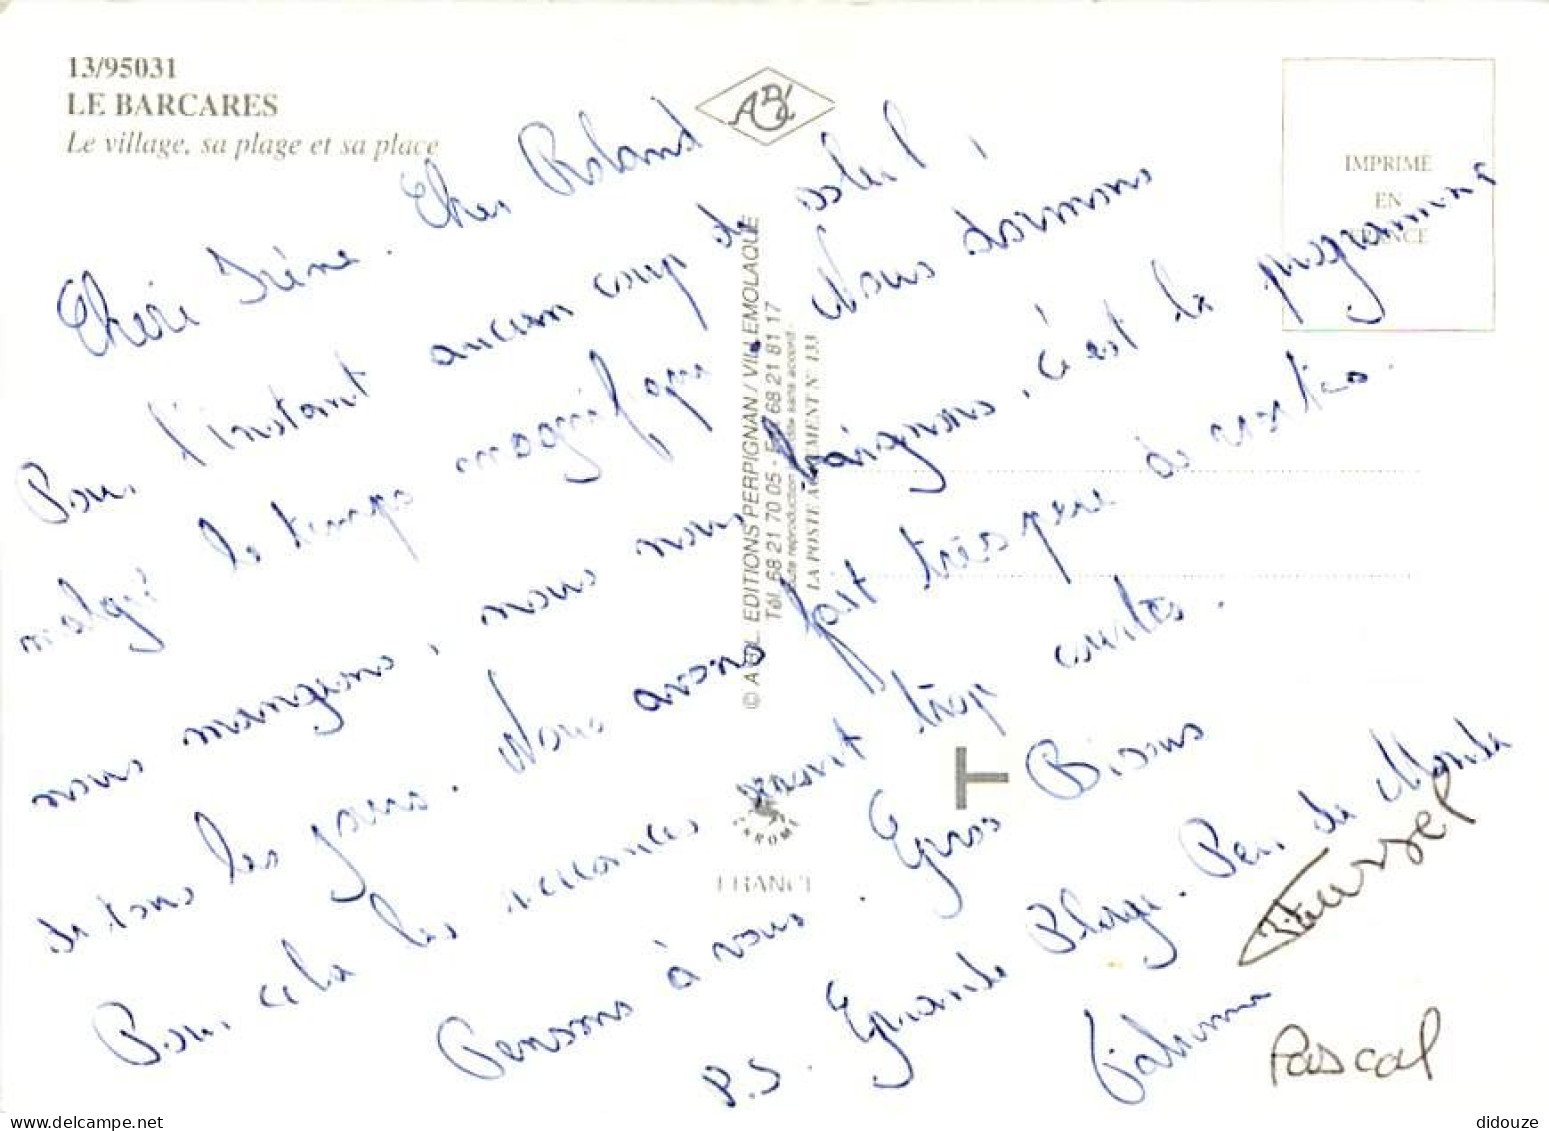 13/95031
LE BARCARES
Le village, sa plage et sa place
IMPRIMÉ
EN
FRANCE
© A.D.L. EDITIONS PERPIGNAN / VILLEMOLAQUE
Tél. 68 21 70 05 - Fax 68 21 81 17
Toute reproduction interdite sans accord
LA POSTE AGRÉMENT N° 133
FRANCE
T
Chère Irène. Cher Roland
Pour l'instant aucun coup de soleil,
malgré le temps magnifique. Nous dormons
nous mangeons, nous nous baignons, c'est le programme
de tous les jours. Nous avons fait très peu de visites.
Pour cela les vacances seront trop courtes.
Pensons à vous. Gros Bisous
P.S. Grande Plage. Peu de Monde
Pascal
didouze